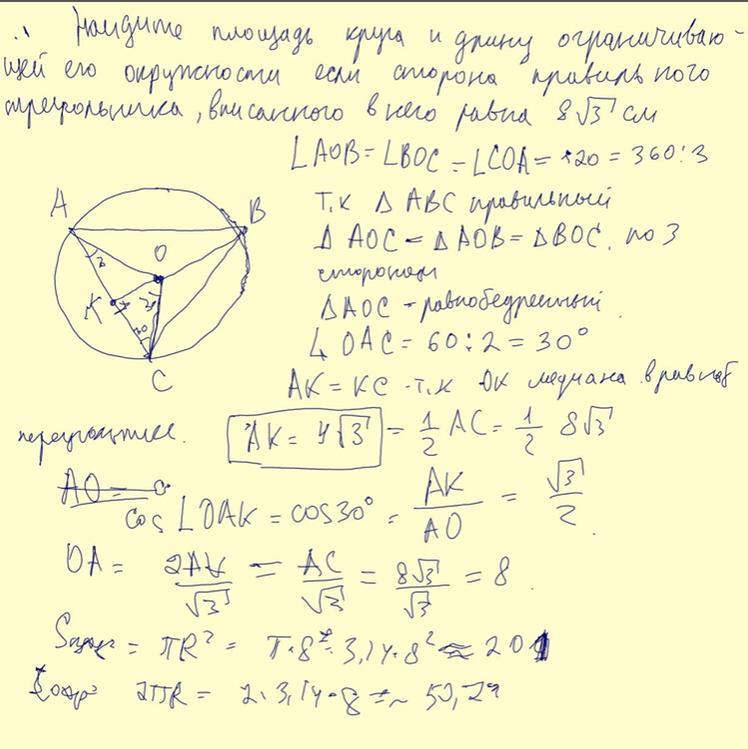 Найдите площадь круга и длину ограничиваю-
щей его окружности если сторона правильного
треугольника, вписанного в него равна 8√3 см
∠AOB = ∠BOC = ∠COA = 120 = 360:3
т.к △ ABC правильный
△ AOC = △AOB = △BOC по 3
сторонам
△AOC - равнобедренный
∠ OAC = 60:2 = 30°
AK = KC т.к OK медиана в равноб
треугольнике. AK = 4√3 = 1/2 AC = 1/2 8√3
AO =
cos ∠OAK = cos30° = AK/AO = √3/2
OA = 2AK/√3 = AC/√3 = 8√3/√3 = 8
A
B
O
K
C
S = πR² = π·8² = 3,14·8² ≈ 201
2πR = 2·3,14·8 ≈ 50,27